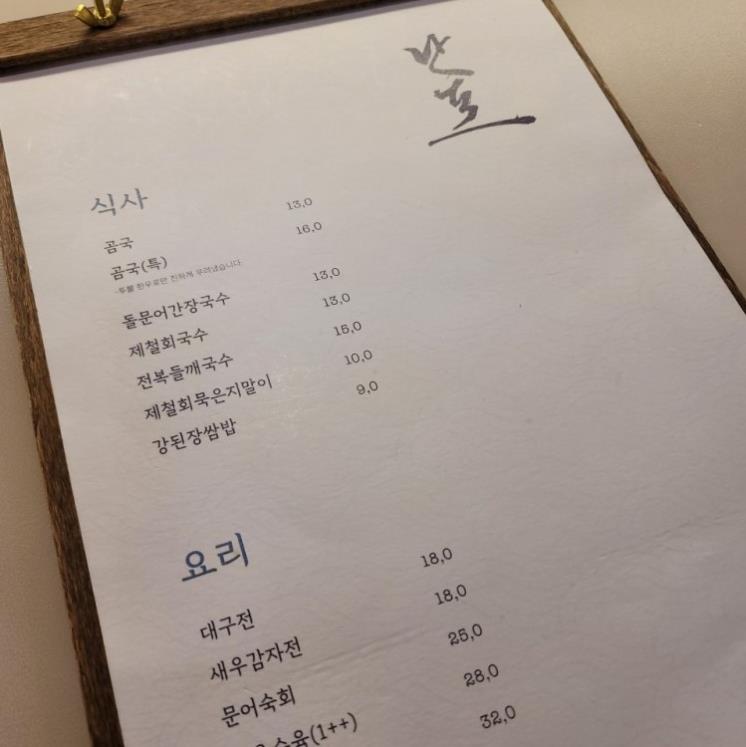 식사
곰국 13,0
곰국(특) 16,0
-투뿔 한우로만 진하게 우려냈습니다.
돌문어간장국수 13,0
제철회국수 13,0
전복들깨국수 15,0
제철회묵은지말이 10,0
강된장쌈밥 9,0
요리
대구전 18,0
새우감자전 18,0
문어숙회 25,0
수육(1++) 28,0
32,0